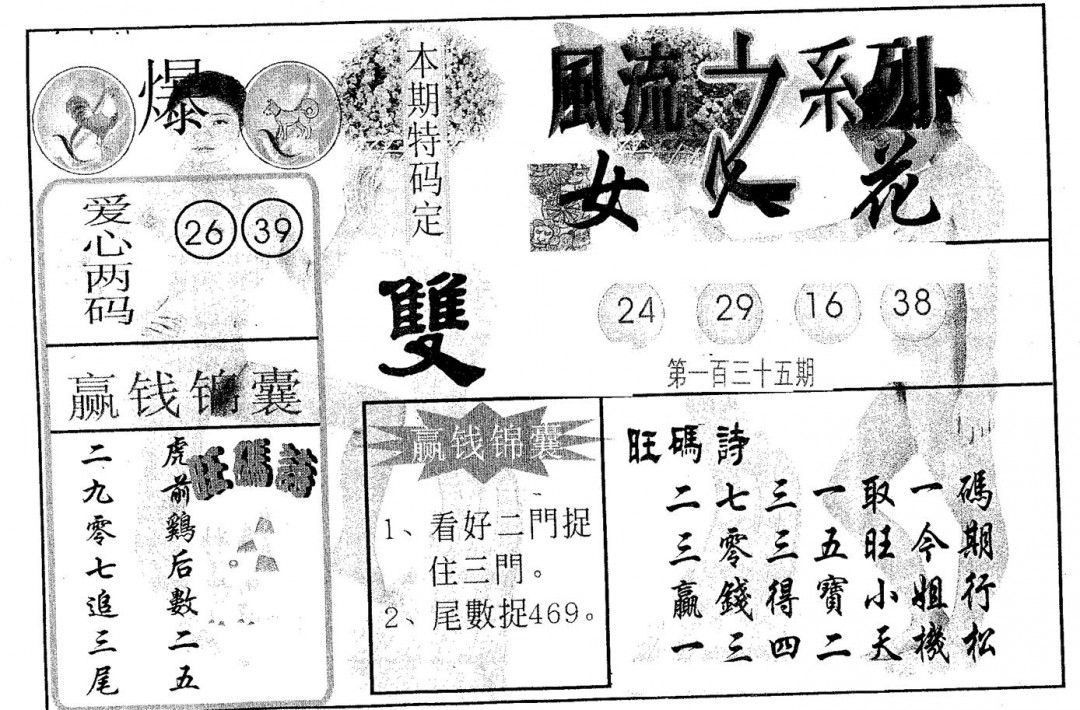 爆
本期特码定
雙
風流系列
女人花
爱心两码
26 39
24 29 16 38
第一百三十五期
赢钱锦囊
旺碼詩
虎前鷄后數二五
二九零七追三尾
赢钱锦囊
1、看好二門捉
住三門。
2、尾數捉469。
旺碼詩
二七三一取一碼
三零三五旺今期
贏錢得寶小姐行
一三四二天機松